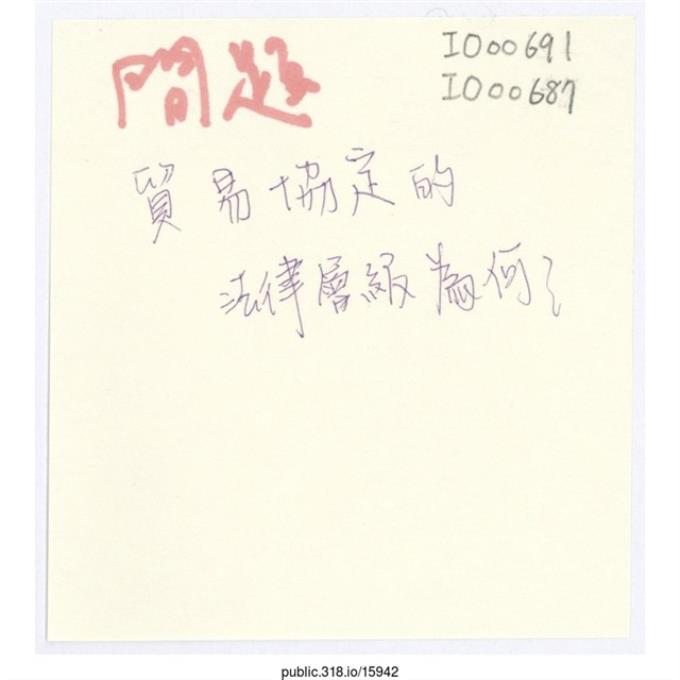 問題
IO00691
IO00687
貿易協定的
法律層級為何?
public.318.io/15942